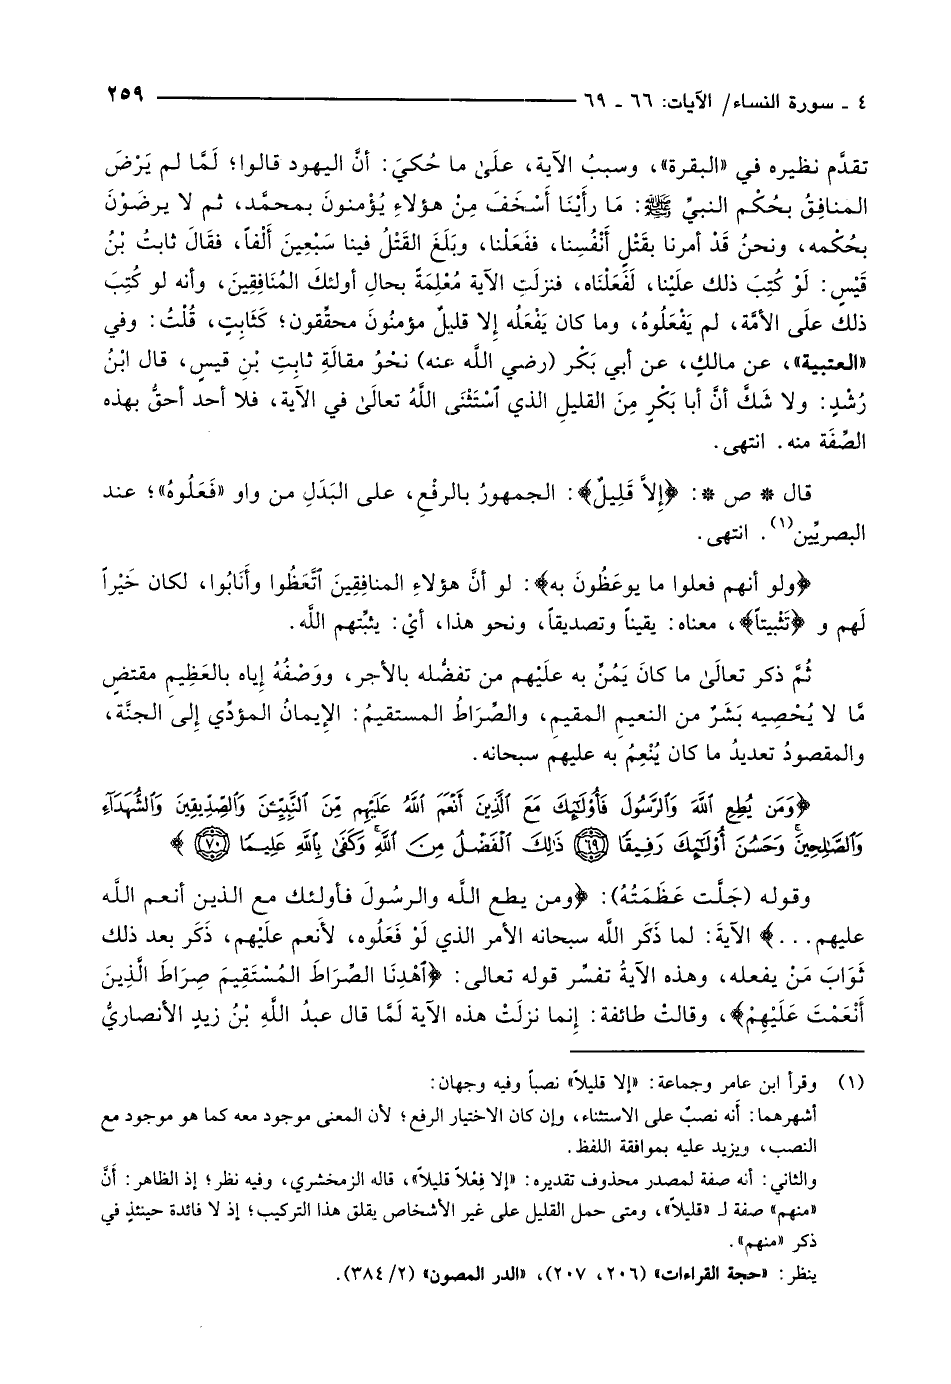 ٤ ـ سورة النساء/ الآيات: ٦٦ ـ ٦٩ ٢٥٩
تقدَّم نظيره في «البقرة»، وسببُ الآية، علَىٰ ما حُكيَ: أنَّ اليهود قالوا؛ لَمَّا لم يَرْضَ
المنافِقُ بحُكْم النبيِّ ﷺ: مَا رأَيْنَا أَسْخَفَ مِنْ هؤلاءِ يُؤْمنونَ بمحمَّد، ثم لا يرضَوْنَ
بحُكْمه، ونحنُ قَدْ أمرنا بقَتْلِ أنْفُسِنا، ففَعَلْنا، وبَلَغَ القَتْلُ فينا سَبْعِينَ أَلْفاً، فقَالَ ثابتُ بْنُ
قَيْسٍ: لَوْ كُتِبَ ذلك علَيْنا، لَفَعَلْنَاه، فنزلَتِ الآية مُعْلِمَةً بحالِ أولئكَ المُنَافِقِينَ، وأنه لو كُتِبَ
ذلك علَى الأمَّة، لم يَفْعَلُوهُ، وما كان يَفْعَلُه إلا قليلٌ مؤمنُونَ محقِّقون؛ كَثَابِتٍ، قُلْتُ: وفي
«العتبية»، عن مالكٍ، عن أبي بَكْر (رضي اللَّه عنه) نحْوُ مقالَةِ ثابِتِ بْنِ قيسٍ، قال ابْنُ
رُشْدٍ: ولا شَكَّ أنَّ أبا بَكْرٍ مِنَ القليلِ الذي ٱسْتَثْنَى اللَّهُ تعالَىٰ في الآية، فلا أحد أحقُّ بهذه
الصِّفَة منه. انتهى.
قال * ص *: ﴿إِلاَّ قَلِيلٌ﴾: الجمهورُ بالرفْعِ، على البَدَلِ من واو «فَعَلُوهُ»؛ عند
البصريِّين(١). انتهى.
﴿ولو أنهم فعلوا ما يوعَظُونَ به﴾: لو أنَّ هؤلاءِ المنافِقِينَ ٱتَّعَظُوا وأَنَابُوا، لكان خَيْراً
لَهم و ﴿تَثْبيتاً﴾، معناه: يقيناً وتصديقاً، ونحو هذا، أيْ: يثبِّتهم اللَّه.
ثُمَّ ذكر تعالَىٰ ما كانَ يَمُنِّ به علَيْهم من تفضُّله بالأجر، ووَصْفُهُ إياه بالعَظِيمِ مقتضٍ
مَّا لا يُحْصِيه بَشَرٌ من النعيمِ المقيمِ، والصِّرَاطُ المستقيمُ: الإيمانُ المؤدِّي إلى الجنَّة،
والمقصودُ تعديدُ ما كان يُنْعِمُ به عليهم سبحانه.
﴿وَمَن يُطِعِ ٱللَّهَ وَٱلرَّسُولَ فَأُوْلَٰٓئِكَ مَعَ ٱلَّذِينَ أَنْعَمَ ٱللَّهُ عَلَيْهِم مِّنَ ٱلنَّبِيِّـۧنَ وَٱلصِّدِّيقِينَ وَٱلشُّهَدَآءِ
وَٱلصَّٰلِحِينَۚ وَحَسُنَ أُوْلَٰٓئِكَ رَفِيقًا ﴿٦٩﴾ ذَٰلِكَ ٱلْفَضْلُ مِنَ ٱللَّهِۚ وَكَفَىٰ بِٱللَّهِ عَلِيمًا ﴿٧٠﴾ ﴾
وقوله (جَلَّت عَظَمَتُهُ): ﴿ومن يطع اللَّه والرسُولَ فأولئك مع الذين أنعم اللَّه
عليهم...﴾ الآيةَ: لما ذَكَر اللَّه سبحانه الأمر الذي لَوْ فَعَلُوه، لأَنعم علَيْهم، ذَكَر بعد ذلك
ثَوَابَ مَنْ يفعله، وهذه الآيةُ تفسِّر قوله تعالى: ﴿ٱهْدِنَا الصِّرَاطَ المُسْتَقِيمَ صِرَاطَ الَّذِينَ
أَنْعَمْتَ عَلَيْهِمْ﴾، وقالتْ طائفة: إنما نزلَتْ هذه الآية لَمَّا قال عبدُ اللَّهِ بْنُ زيدٍ الأنصاريُّ
(١) وقرأ ابن عامر وجماعة: «إلا قليلاً» نصباً وفيه وجهان:
أشهرهما: أنه نصبٌ على الاستثناء، وإن كان الاختيار الرفع؛ لأن المعنى موجود معه كما هو موجود مع
النصب، ويزيد عليه بموافقة اللفظ.
والثاني: أنه صفة لمصدر محذوف تقديره: «إلا فِعْلاً قليلاً»، قاله الزمخشري، وفيه نظر؛ إذ الظاهر: أنَّ
«منهم» صفة لـ «قليلاً»، ومتى حمل القليل على غير الأشخاص يقلق هذا التركيب؛ إذ لا فائدة حينئذٍ في
ذكر «منهم».
ينظر: «حجة القراءات» (٢٠٦، ٢٠٧)، «الدر المصون» (٢/ ٣٨٤).